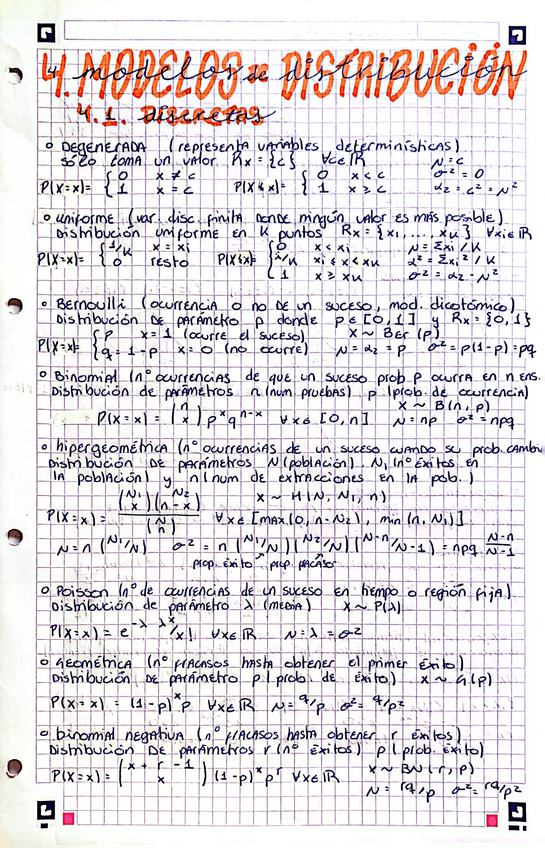 4. MODELOS DE DISTRIBUCIÓN
4.1. DISCRETAS
° DEGENERADA (representa variables determinísticas)
sólo toma un valor Rx = {c} ∀c∈ℝ μ=c
P(X=x)= { 0 x ≠ c P(X≤x)= { 0 x < c σ²=0
1 x = c 1 x ≥ c α₂ = c² = μ²
° uniforme (var. disc. finita donde ningún valor es más posible)
Distribución uniforme en K puntos Rx = {x₁,...,xκ} ∀xi∈ℝ
P(X=x)= { 1/K x = xi P(X≤x)= { 0 x < xi μ = Σxi/K
0 resto i/K xi ≤ x < xκ α² = Σxi²/K
1 x ≥ xκ σ² = α₂ - μ²
° Bernouilli (ocurrencia o no de un suceso, mod. dicotómico)
Distribución de parámetro p donde p ∈ [0,1] y Rx = {0,1}
P(X=x)= { p x = 1 (ocurre el suceso) X ~ Ber(p)
q = 1-p x = 0 (no ocurre) μ = α₂ = p σ² = p(1-p) = pq
° Binomial (nº ocurrencias de que un suceso prob p ocurra en n ens.
Distribución de parámetros n (num. pruebas) p (prob. de ocurrencia)
X ~ B(n, p)
P(X=x) = (n x) pˣqⁿ⁻ˣ ∀x∈ [0,n] μ = np σ² = npq
° hipergeométrica (nº ocurrencias de un suceso cuando su prob. cambi
Distribución de parámetros N (población), N₁ (nº éxitos en
la población) y n (num de extracciones en la pob.)
P(X=x) = (N₁ x)(N₂ n-x) / (N n) X ~ H(N, N₁, n)
∀x∈ [max(0, n-N₂), min(n, N₁)]
μ = n (N₁/N) σ² = n (N₁/N)(N₂/N)(N-n/N-1) = npq N-n/N-1
prop. éxito prop. fracaso
° Poisson (nº de ocurrencias de un suceso en tiempo o región fija)
Distribución de parámetro λ (media) X ~ P(λ)
P(X=x) = e^-λ λˣ/x! ∀x∈ℝ μ = λ = σ²
° Geométrica (nº fracasos hasta obtener el primer éxito)
Distribución de parámetro p (prob. de éxito) X ~ G(p)
P(X=x) = (1-p)ˣp ∀x∈ℝ μ = q/p σ² = q/p²
° binomial negativa (nº fracasos hasta obtener r éxitos)
Distribución De parámetros r (nº éxitos) p (prob. éxito)
P(X=x) = (x+r-1 x) (1-p)ˣpʳ ∀x∈ℝ X ~ BN(r, p)
μ = rq/p σ² = rq/p²